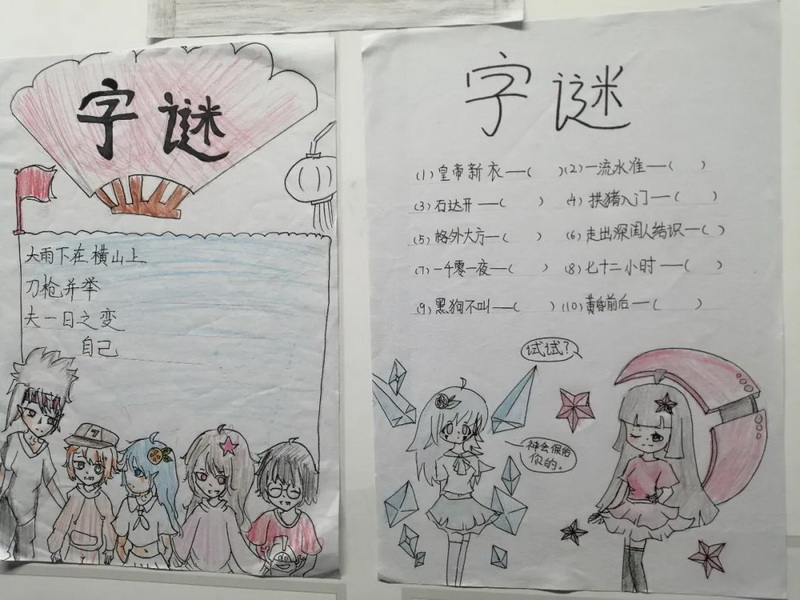 字谜
大雨下在横山上
刀枪并举
夫一日之变
自己
字谜
(1) 皇帝新衣—( ) (2) 一流水准—( )
(3) 石达开—( ) (4) 拱猪入门—( )
(5) 格外大方—( ) (6) 走出深闺人结识—( )
(7) 一千零一夜—( ) (8) 七十二小时—( )
(9) 黑狗不叫—( ) (10) 黄昏前后—( )
试试?
神会保佑
你的。